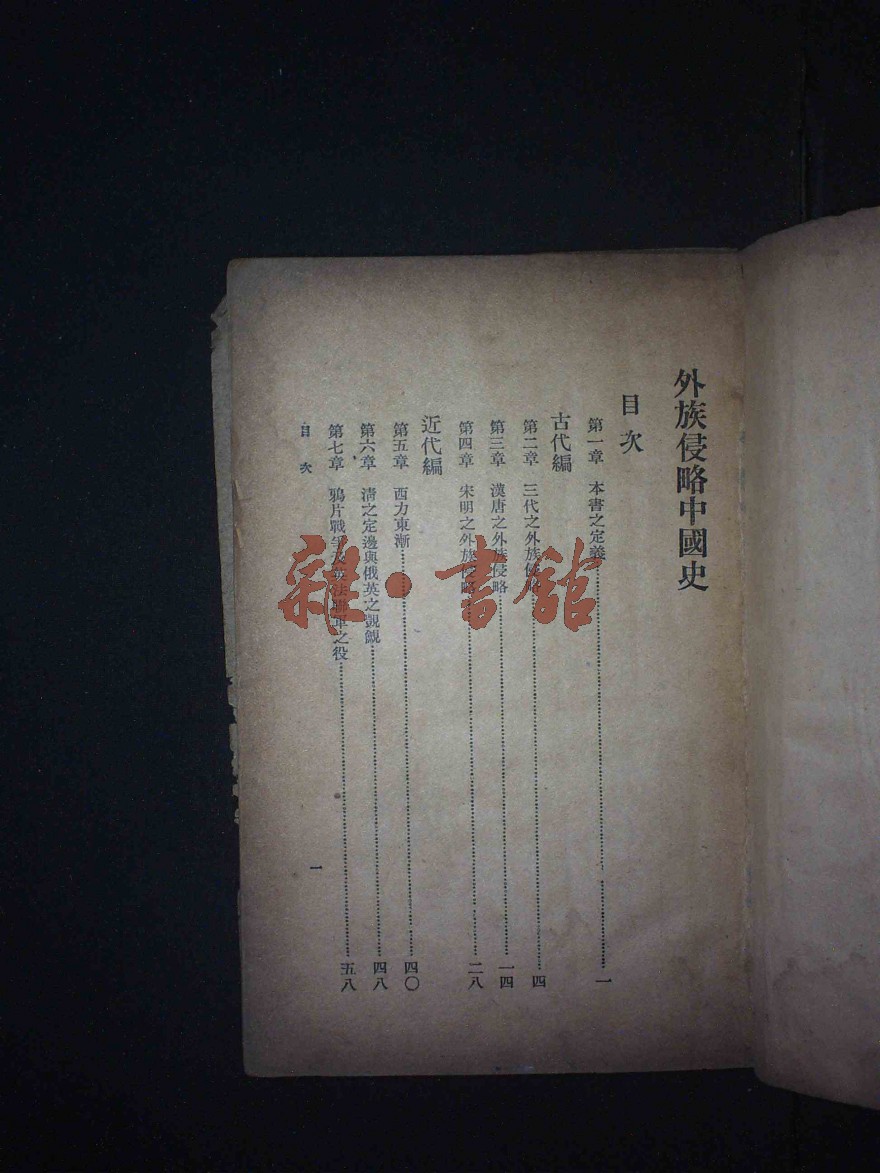 外族侵略中國史
目次
第一章 本書之定義……一
古代編
第二章 三代之外族侵略……四
第三章 漢唐之外族侵略……一四
第四章 宋明之外族侵略……二八
近代編
第五章 西力東漸……四〇
第六章 清之定邊與俄英之覬覦……四八
第七章 鴉片戰爭及英法聯軍之役……五八
目次
一
雜·書館